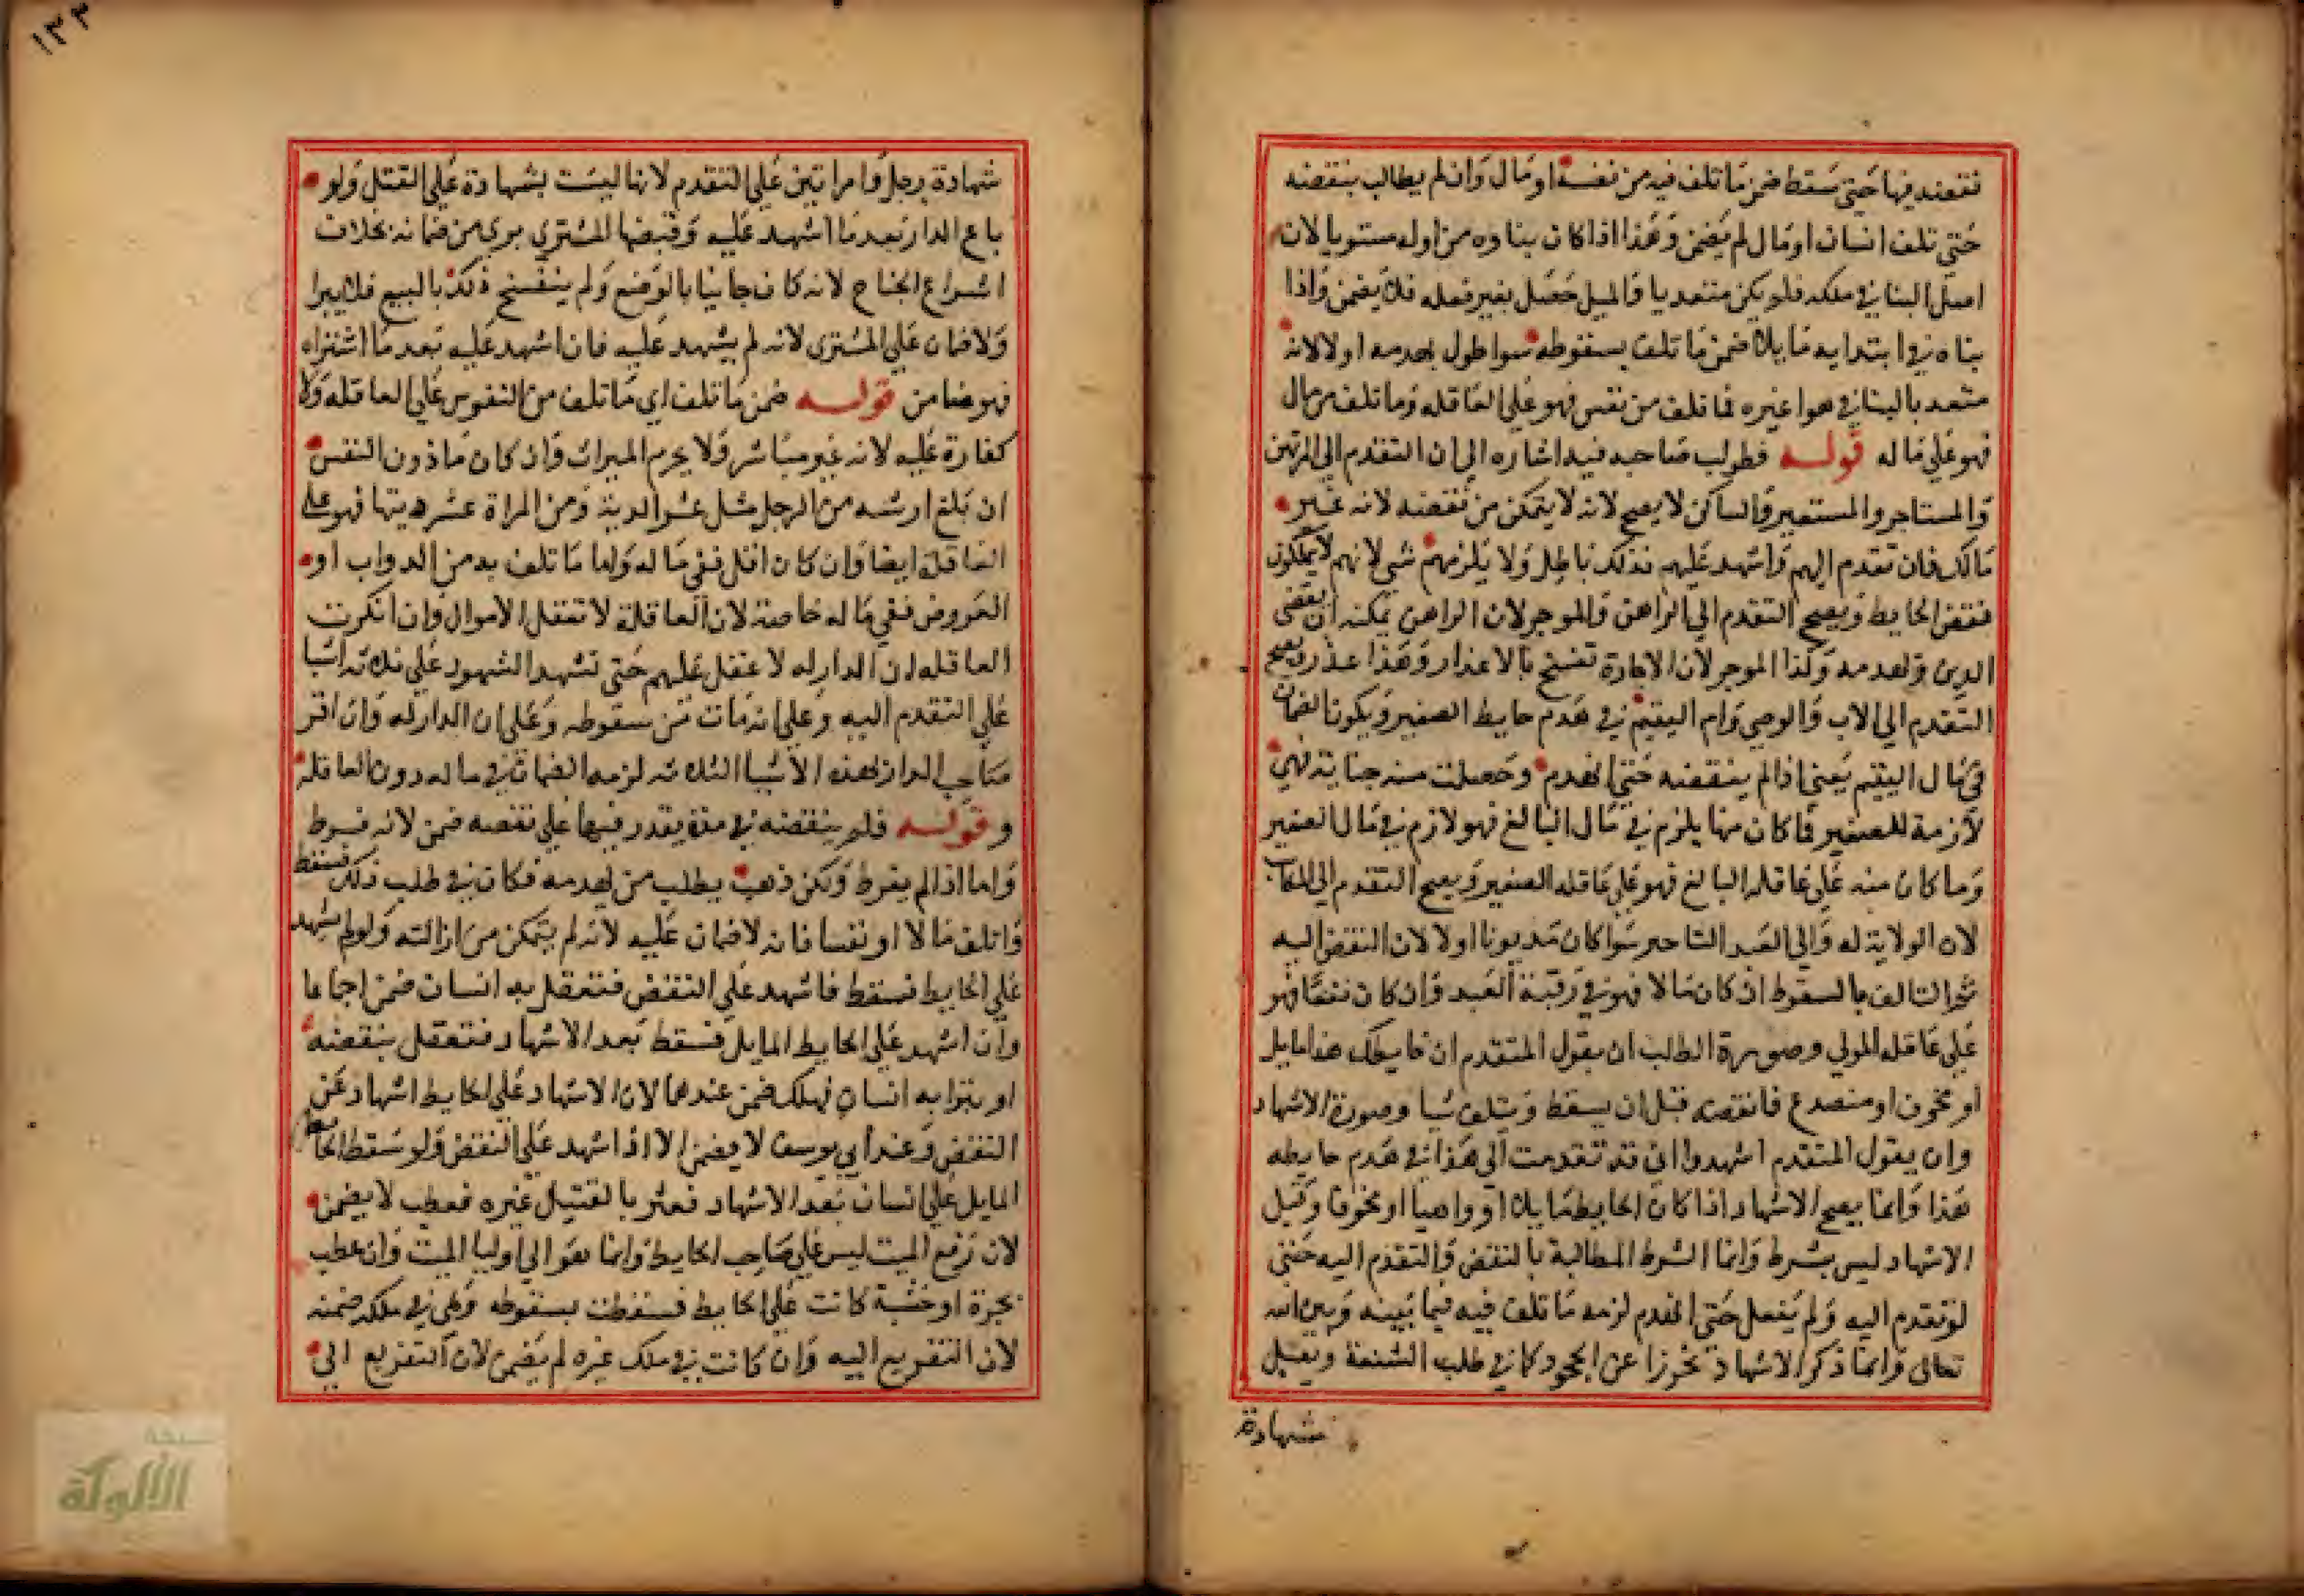 نقضه فيها حتى سقط ضمن ما تلف فيه من نفس او مال وان لم يطالب بنقضه
حتى تلف انسان او مال لم يضمن وهذا اذا كان بناوه من اوله مستويا لان
اصل البنا في ملكه فلم يكن متعديا والميل حصل بغير فعله فلا يضمن واذا
بناه في ابتدايه مايلا ضمن ما تلف بسقوطه سوا طولب بهدمه او لا لانه
متعد بالبنا في هوا غيره فما تلف من نفس فهو على العاقله وما تلف من مال
فهو على ماله قوله فطولب صاحبه فيه اشاره الى ان التقدم الى المرتهن
والمستاجر والمستعير والساكن لا يصح لانه لا يتمكن من نقضه لانه غير
مالك فان تقدم اليهم واشهد عليهم فذلك باطل ولا يلزمهم شي لانهم لا يملكون
نقض الحايط ويصح التقدم الى الراهن والموجر لان الراهن يمكنه ان يقضى
الدين وبعد مده وكذا الموجر لان الاجارة تفسخ بالاعذار وهذا عذر ويصح
التقدم الى الاب والوصي وام اليتيم في هدم حايط الصغير ويكون الضمان
في مال اليتيم يعني اذا لم ينقضه حتى انهدم وحصلت منه جناية فهي
لازمة للصغير فما كان منها يلزم في مال البالغ فهو لازم في مال الصغير
وما كان منه على عاقله البالغ فهو على عاقله الصغير ويصح التقدم الى المكاتب
لان الولاية له والى العبد التاجر سوا كان مديونا او لا لان النقض اليه
ثم التالف بالسقوط ان كان مالا فهو في رقبة العبد وان كان نفسا فهو
على عاقله المولي وصورة الطلب ان يقول المتقدم ان حايطك هذا مايل
او مخوف او منصدع فانقضه قبل ان يسقط ويتلف شيا وصورة الاشهاد
وان يقول المتقدم اشهدوا اني قد تقدمت الى هذا في هدم حايطه
هذا وانما يصح الاشهاد اذا كان الحايط مايلا او واهيا او مخوفا وقيل
الاشهاد ليس بشرط وانما الشرط المطالبة بالنقض والتقدم اليه حتى
لو تقدم اليه ولم يفعل حتى انهدم لزمه ما تلف فيه فيما بينه وبين الله
تعالى وانما ذكر الاشهاد تحرزا عن الجحود كما في طلب الشفعة ويقبل
شهادة
١٣٣
شهادة رجل وامراتين على التقدم لانها ليست بشهادة على القتل ولو
باع الدار بعد ما اشهد عليه وقبضها المشتري بري من ضمانه بخلاف
اشراع الجناح لانه كان جانيا بالوضع ولم ينفسخ ذلك بالبيع فلا يبرا
ولا ضمان على المشتري لانه لم يشهد عليه فان اشهد عليه بعد ما اشتراه
فهو ضامن قوله ضمن ما تلف اي ما تلف من النفوس على العاقله ولا
كفارة عليه لانه غير مباشر ولا يحرم الميراث وان كان ما دون النفس
ان بلغ ارشه من الرجل مثل عشر الدية ومن المراة عشر ديتها فهو على
العاقلة ايضا وان كان اقل ففي ماله واما ما تلف به من الدواب او
العروض ففي ماله خاصة لان العاقلة لا تعقل الاموال وان انكرت
العاقله ان الدار له لا عقل عليهم حتى تشهد الشهود على ثلاثه اشيا
على التقدم اليه وعلى انه مات من سقوطه وعلى ان الدار له وان اقر
صاحب الدار بهذه الاشيا الثلاثه لزمه الضمان في ماله دون العاقله
و قوله فلم ينقضه في مدة يقدر فيها على نقضه ضمن لانه فرط
واما اذا لم يفرط ولكن ذهب يطلب من يهدمه فكان في طلب ذلك فسقط
واتلف مالا او نفسا فانه لا ضمان عليه لانه لم يتمكن من ازالته ولو لم يشهد
على الحايط فسقط فاشهد على النقض فتعقل به انسان ضمن اجماعا
وان اشهد على الحايط المايل فسقط بعد الاشهاد فتعقل بنقضه
او بترابه انسان فهلك ضمن عندهما لان الاشهاد على الحايط اشهاد عن
النقض وعند ابي يوسف لا يضمن الا اذا اشهد على النقض ولو سقط الحايط
المايل على انسان بعد الاشهاد فعثر بالقتيل غيره فعطب لا يضمن
لان رفع الميت ليس على صاحب الحايط وانما هو الى اوليا الميت وان عطب
بجرة او خشبة كانت على الحايط فسقطت بسقوطه وهي في ملكه ضمنه
لان التفريع اليه وان كانت في ملك غيره لم يضمن لان التفريع الى
الألوكة